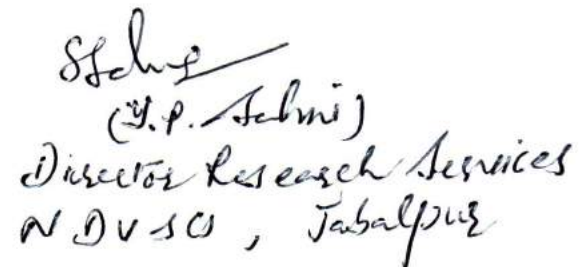 (Y.P. Sahni)
Director Research Services
NDVSU, Jabalpur